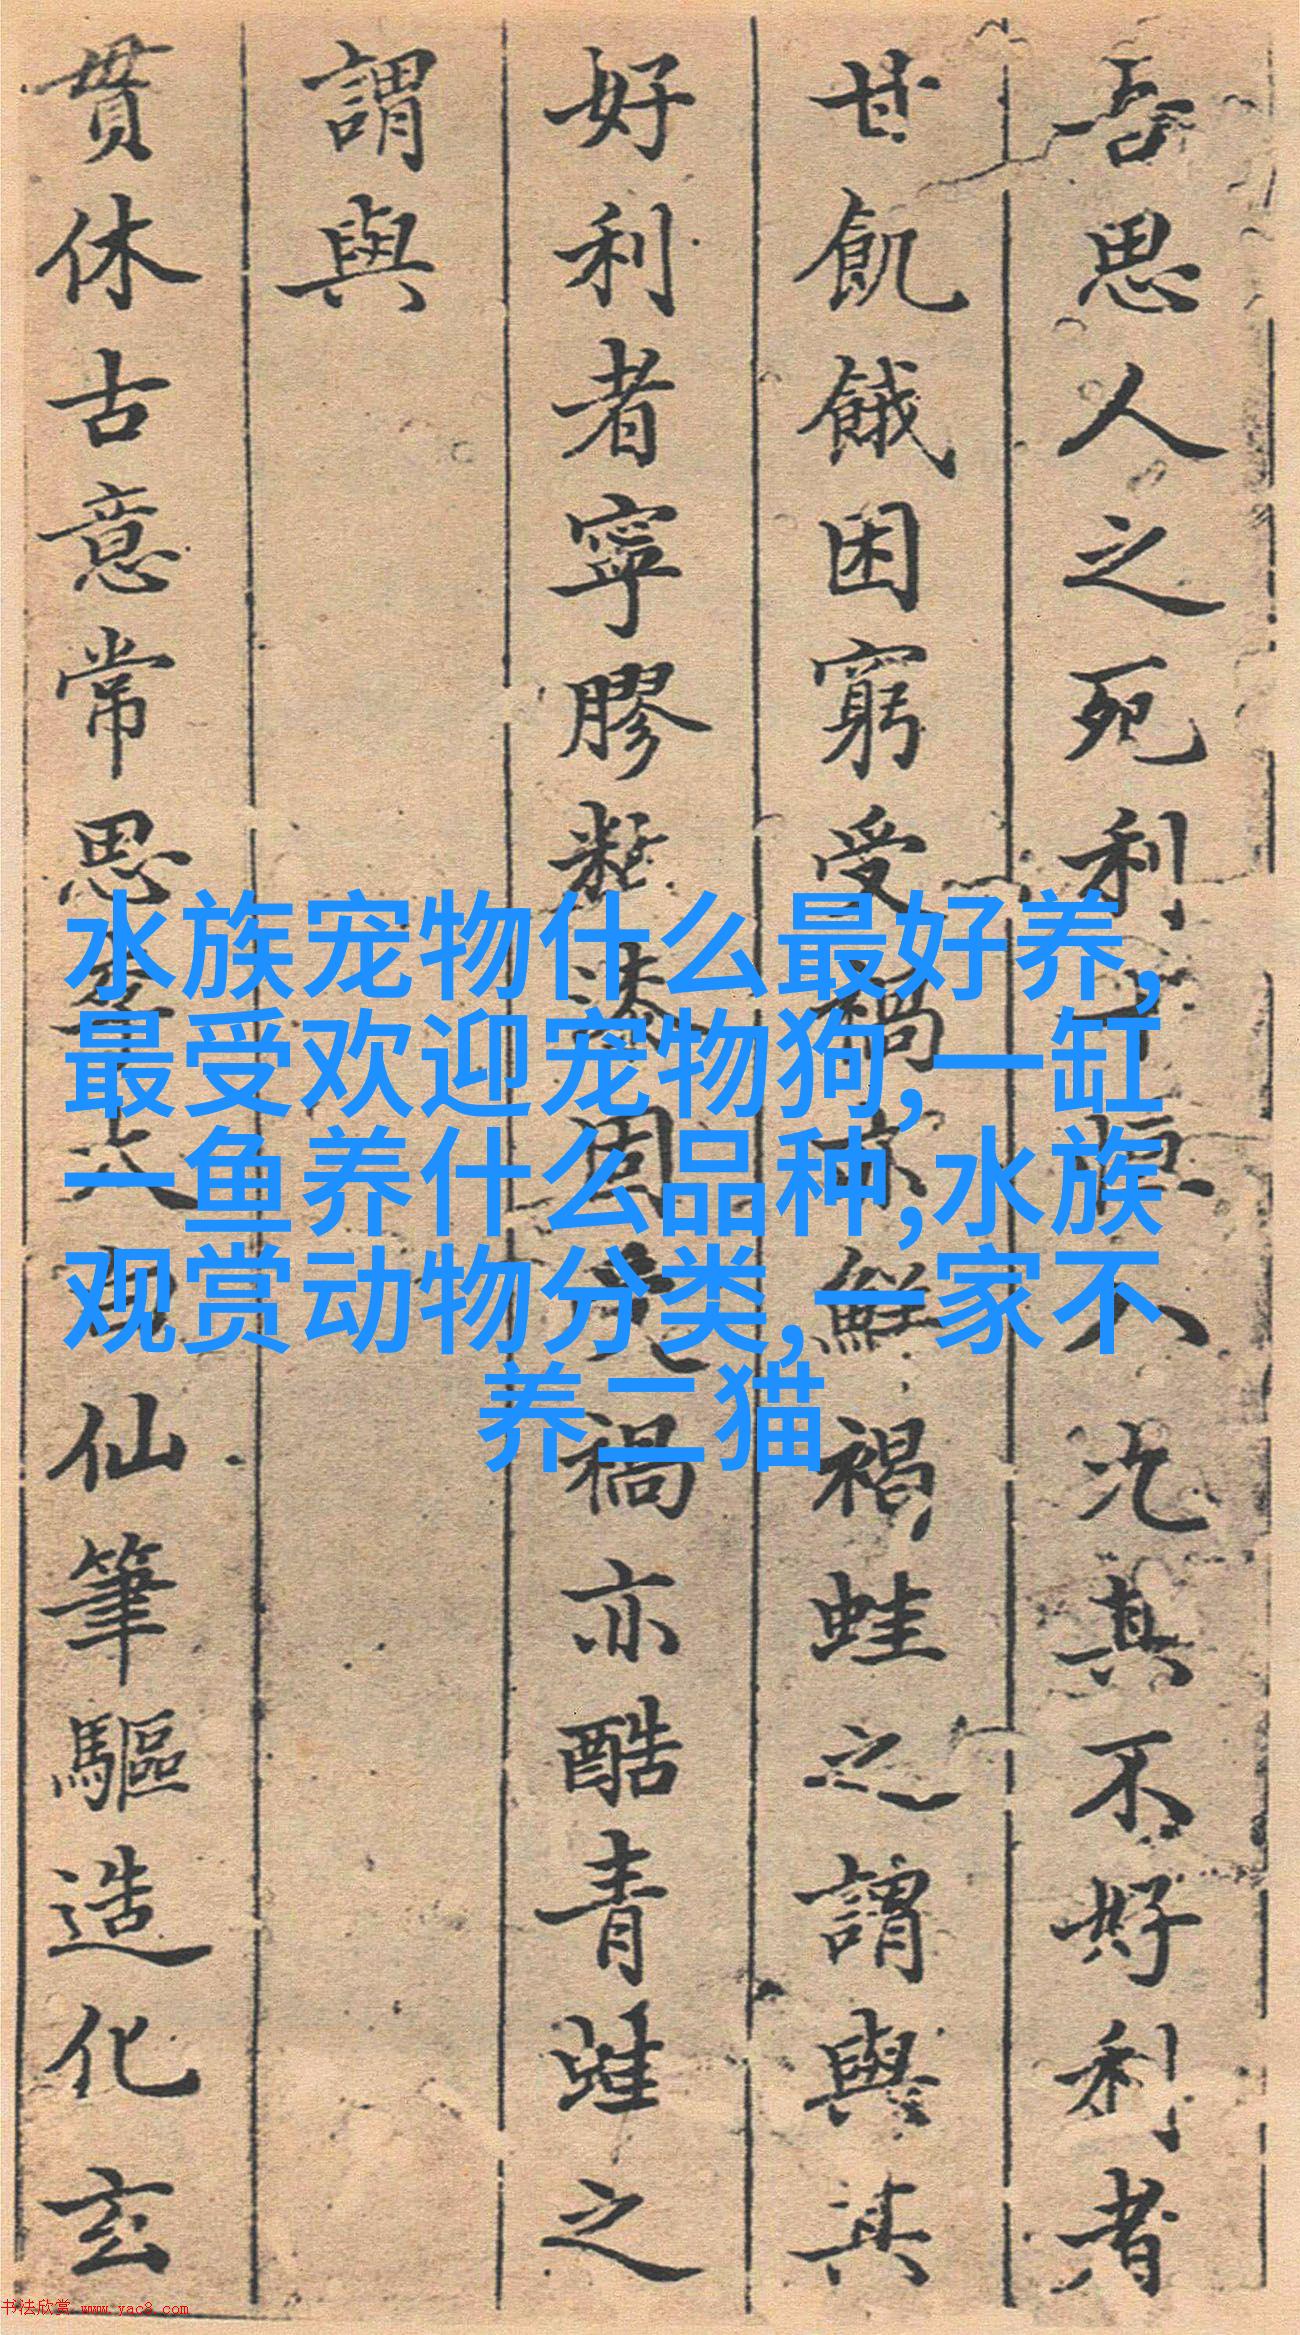 水族宠物什么最好养,
最受欢迎宠物狗,一缸
一鱼养什么品种,水族
观赏动物分类,一家不
养二猫
吾思人之死利恒況其不好利者
甘飢餓困窮受禍亦鮮褐蛙之謂與其
好利者寧膠黏漆固禍亦酷青蛙之
謂與
貫休古意常思李太白仙筆驅造化玄
书法欣赏 www.yac8.com